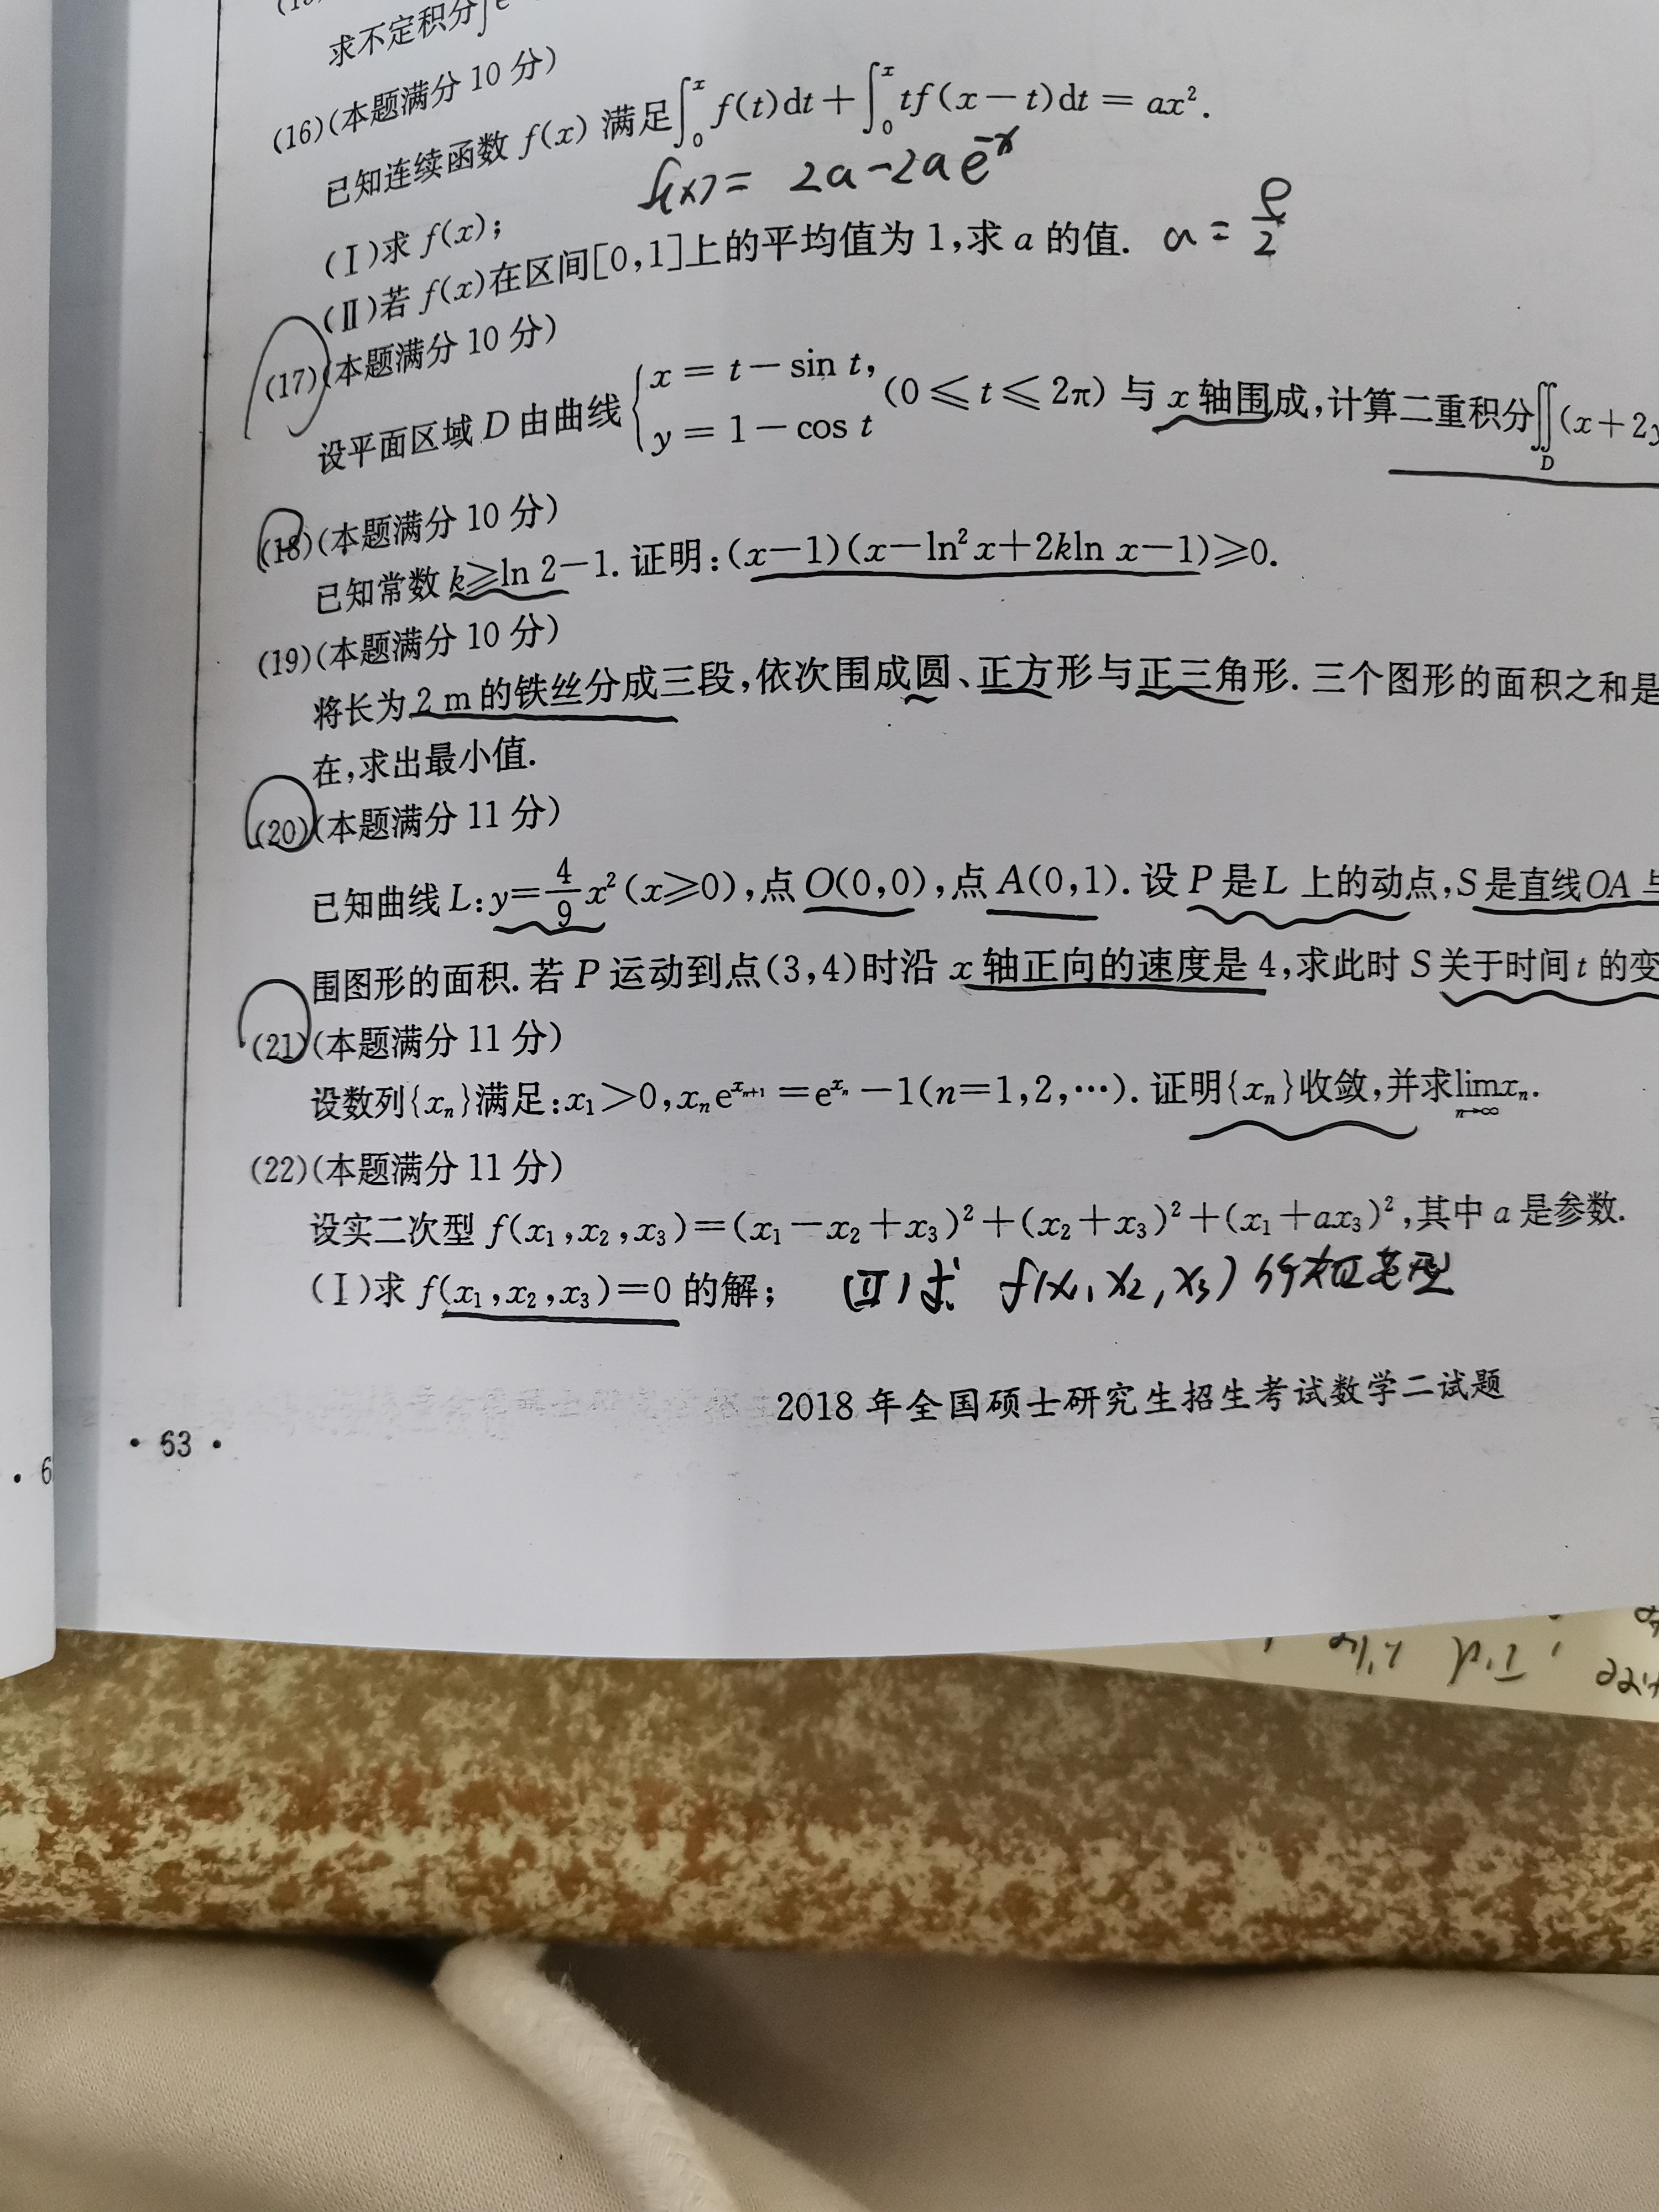 求不定积分∫e
(16)(本题满分 10 分)
已知连续函数 f(x) 满足∫₀ˣ f(t)dt＋∫₀ˣ tf(x－t)dt = ax².
f(x) = 2a-2ae⁻ˣ
(Ⅰ)求 f(x);
(Ⅱ)若 f(x)在区间[0,1]上的平均值为 1,求 a 的值. a = e/2
(17)(本题满分 10 分)
设平面区域 D 由曲线{x = t－sin t, y = 1－cos t (0≤t≤2π) 与 x 轴围成,计算二重积分∬_D(x＋2y
(18)(本题满分 10 分)
已知常数 k≥ln 2－1. 证明:(x－1)(x－ln²x＋2kln x－1)≥0.
(19)(本题满分 10 分)
将长为 2 m 的铁丝分成三段,依次围成圆、正方形与正三角形. 三个图形的面积之和是
在,求出最小值.
(20)(本题满分 11 分)
已知曲线 L:y=4/9x²(x≥0),点 O(0,0),点 A(0,1). 设 P 是 L 上的动点,S 是直线OA 与
围图形的面积. 若 P 运动到点(3,4)时沿 x 轴正向的速度是 4,求此时 S 关于时间 t 的变
(21)(本题满分 11 分)
设数列{xₙ}满足:x₁＞0,xₙe^{xₙ₊₁}=e^{xₙ}－1(n=1,2,…). 证明{xₙ}收敛,并求lim_{n→∞}xₙ.
(22)(本题满分 11 分)
设实二次型 f(x₁,x₂,x₃)=(x₁－x₂＋x₃)²＋(x₂＋x₃)²＋(x₁＋ax₃)²,其中 a 是参数.
(Ⅰ)求 f(x₁,x₂,x₃)=0 的解; (Ⅱ)求 f(x₁,x₂,x₃) 的规范型
2018 年全国硕士研究生招生考试数学二试题
· 63 ·
· 6